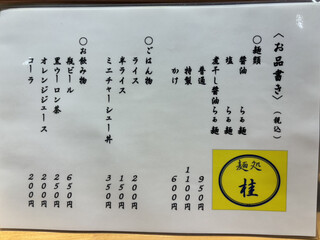 〈お品書き〉（税込）
○麺類
醤油 らぁ麺
塩 らぁ麺
煮干し醤油らぁ麺
普通 950円
特製 1100円
かけ 600円
○ごはん物
ライス 200円
半ライス 150円
ミニチャーシュー丼 350円
○お飲み物
瓶ビール 650円
黒ウーロン茶 250円
オレンジジュース 200円
コーラ 200円
麺処
桂